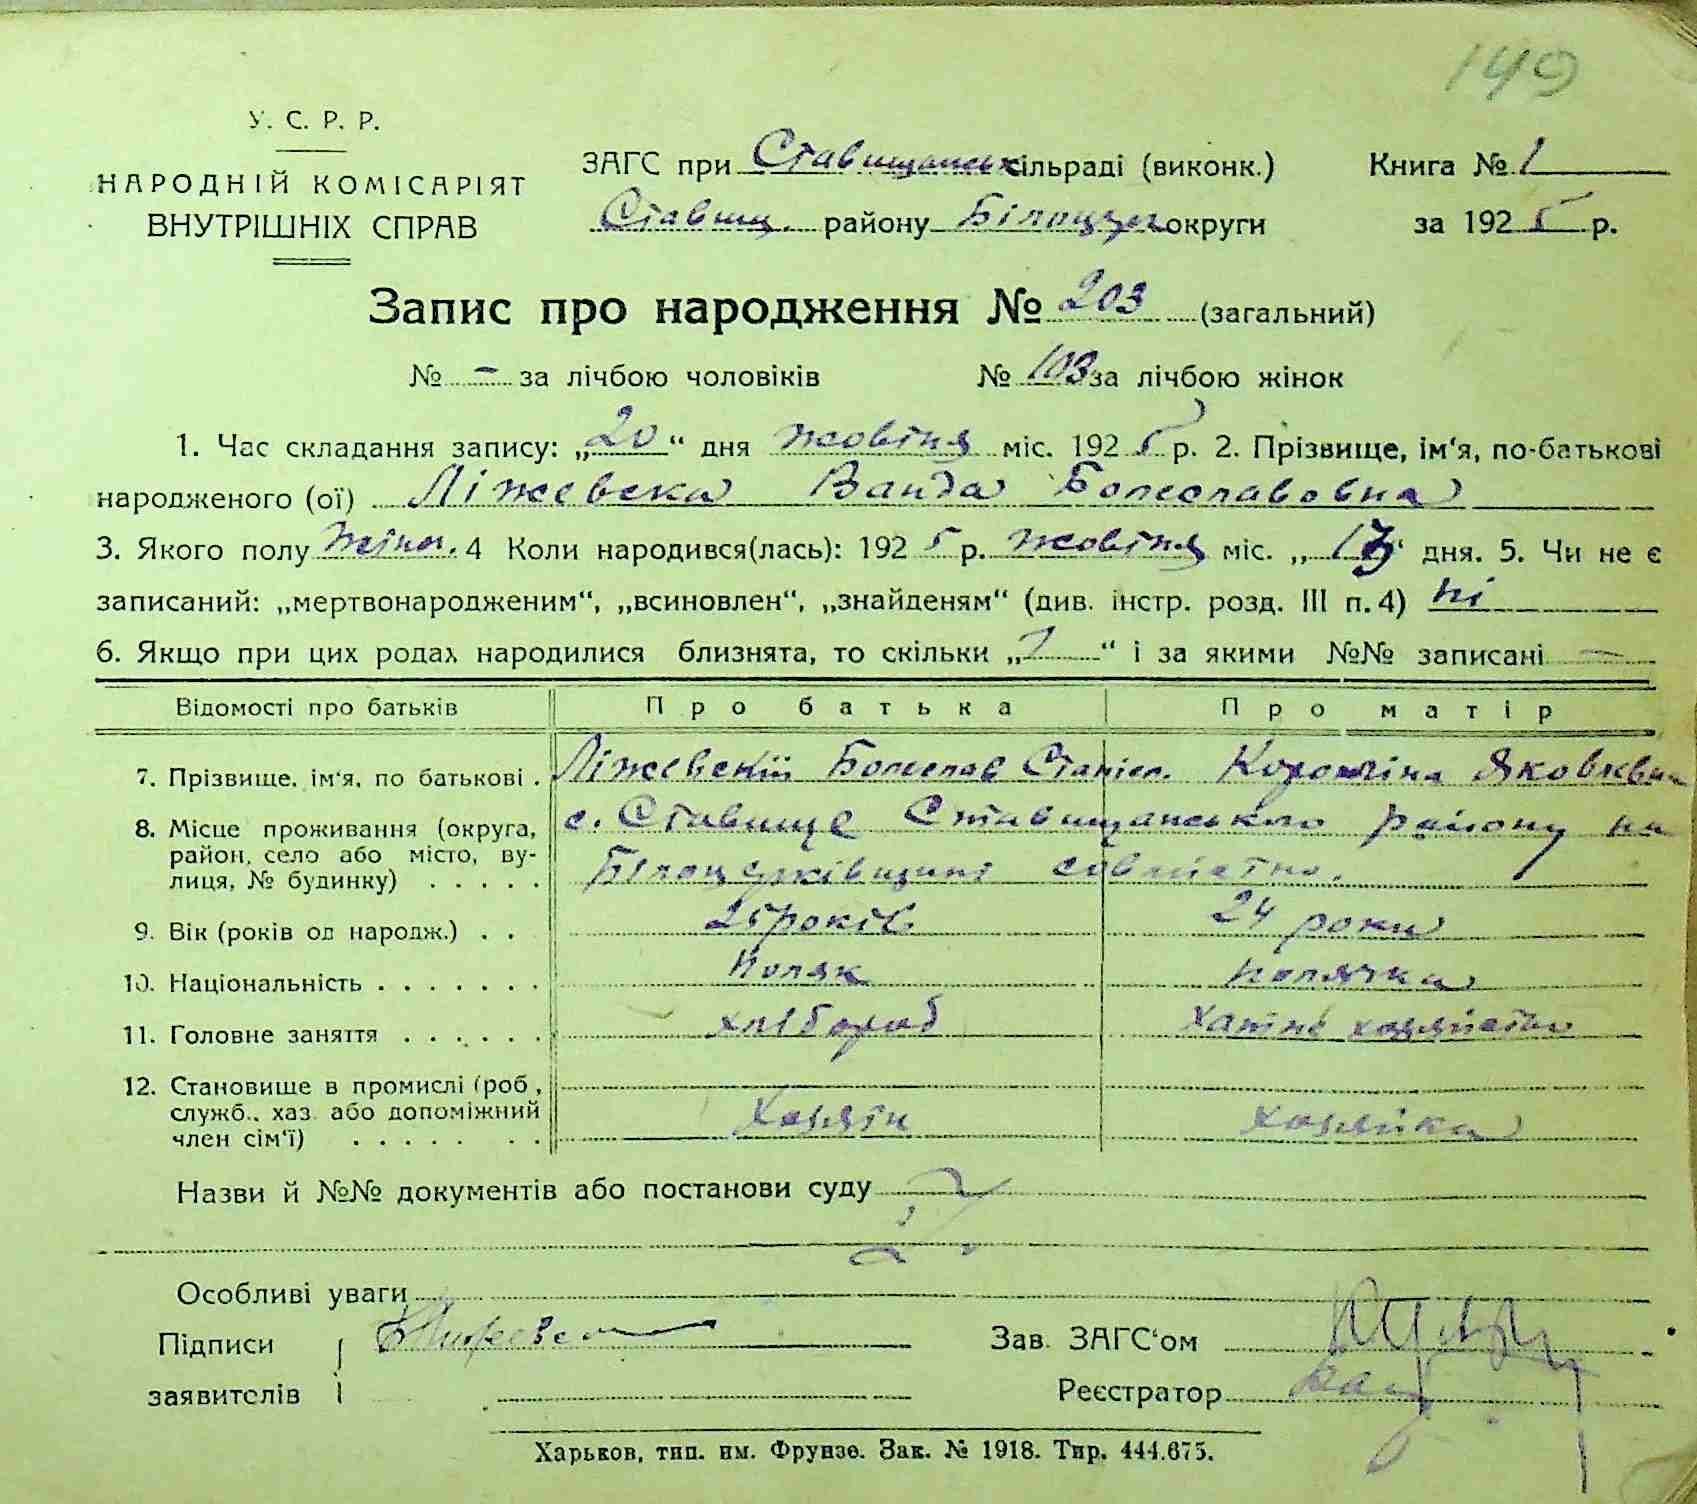 149
У. С. Р. Р.
НАРОДНІЙ КОМІСАРІЯТ
ВНУТРІШНІХ СПРАВ
ЗАГС при Ставищанськ сільраді (виконк.) Книга № 1
Ставищ. району Білоцер округи за 1925 р.
Запис про народження № 203 (загальний)
№ - за лічбою чоловіків № 103 за лічбою жінок
1. Час складання запису: „20“ дня жовтня міс. 1925 р. 2. Прізвище, ім‘я, по-батькові
народженого (ої) Ліжевска Ванда Болеславовна
3. Якого полу жіноч. 4 Коли народився(лась): 1925 р. жовтня міс. „ “ дня. 5. Чи не є
записаний: „мертвонародженим“, „всиновлен“, „знайденям“ (див. інстр. розд. III п. 4) ні
6. Якщо при цих родах народилися близнята, то скільки „ “ і за якими №№ записані —
Відомості про батьків Про батька Про матір
7. Прізвище, ім‘я, по батькові . Ліжевскій Болеслав Станісл.
8. Місце проживання (округа, с. Ставище Ставищанського району на
район, село або місто, ву- Білоцерківщині совместно.
лиця, № будинку) . . . . .
9. Вік (років од народж.) . . 25 років 24 роки
10. Національність . . . . . . . Поляк Полячка
11. Головне заняття . . . . . . хлібороб хатнє хозяйство
12. Становище в промислі (роб.,
служб., хаз. або допоміжний Хозяїн хозяйка
член сім‘ї) . . . . . . .
Назви й №№ документів або постанови суду
Особливі уваги
Підписи Зав. ЗАГС‘ом
заявителів Реєстратор
Харьков, тип. им. Фрунзе. Зак. № 1918. Тир. 444.675.